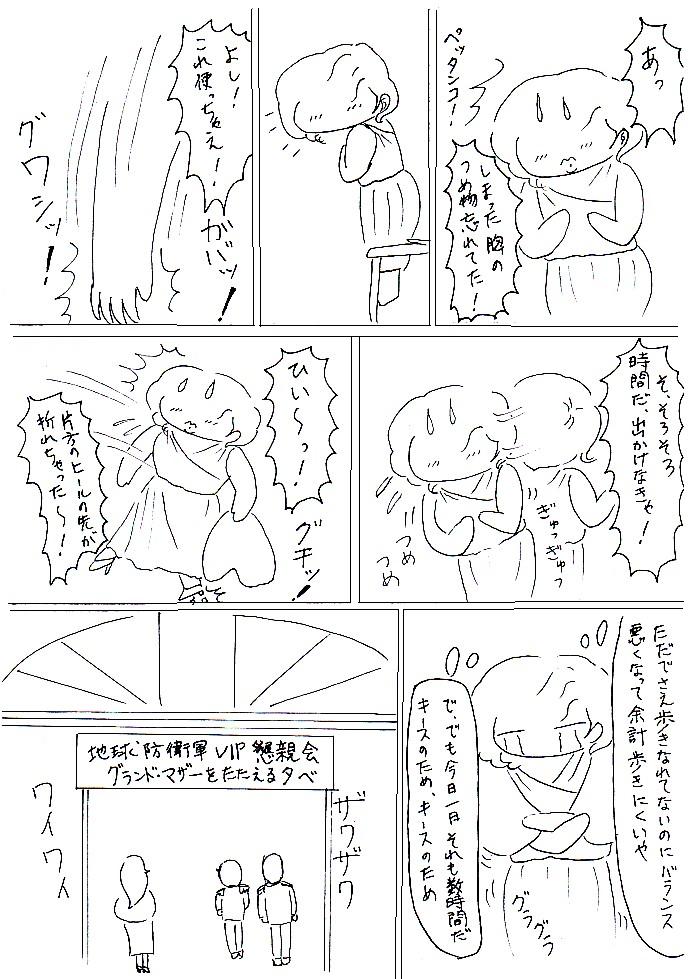 あっ
ペッタンコ！
しまった胸の
つめ物忘れてた！
よし！
これ使っちゃえ！
ガバッ！
グワシッ！
そ、そろそろ
時間だ、出かけなきゃ！
ぎゅっぎゅっ
つめ
つめ
ひい～っ！
グキッ！
片方のヒールの先が
折れちゃった～！
ただでさえ歩きなれてないのにバランス
悪くなって余計歩きにくいや
で、でも今日一日それも数時間だ
キースのため、キースのため
グラ
グラ
地球防衛軍VIP懇親会
グランド・マザーをたたえる夕べ
ザワザワ
ワイワイ